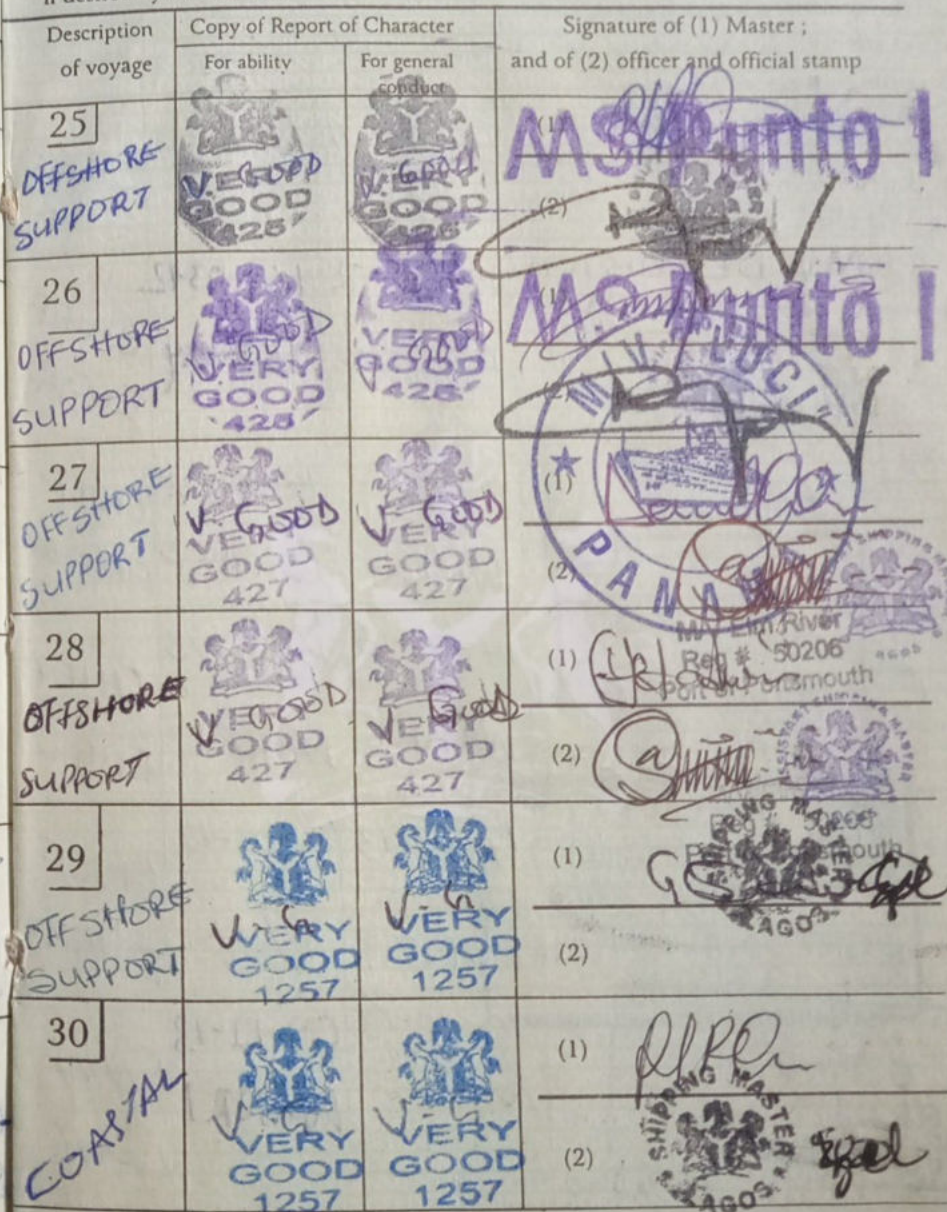 Description
of voyage
Copy of Report of Character
For ability
For general
conduct
Signature of (1) Master ;
and of (2) officer and official stamp
25
OFFSHORE
SUPPORT
V. GOOD
VERY
GOOD
425
V. GOOD
VERY
GOOD
(1)
MS Punto I
(2)
26
OFFSHORE
SUPPORT
V. GOOD
VERY
GOOD
425
V. GOOD
VERY
GOOD
425
(1)
MS Punto I
(2)
27
OFFSHORE
SUPPORT
V GOOD
VERY
GOOD
427
V GOOD
VERY
GOOD
427
(1)
(2)
PANA
28
OFFSHORE
SUPPORT
V GOOD
VERY
GOOD
427
V GOOD
VERY
GOOD
427
(1)
M/V Elm River
Reg # 50206
Port of Portsmouth
(2)
ASSISTANT SHIPPING MASTER
29
OFFSHORE
SUPPORT
V-G
VERY
GOOD
1257
V-G
VERY
GOOD
1257
(1)
SHIPPING MASTER
LAGOS
(2)
30
COASTAL
V-G
VERY
GOOD
1257
V-G
VERY
GOOD
1257
(1)
(2)
SHIPPING MASTER
LAGOS